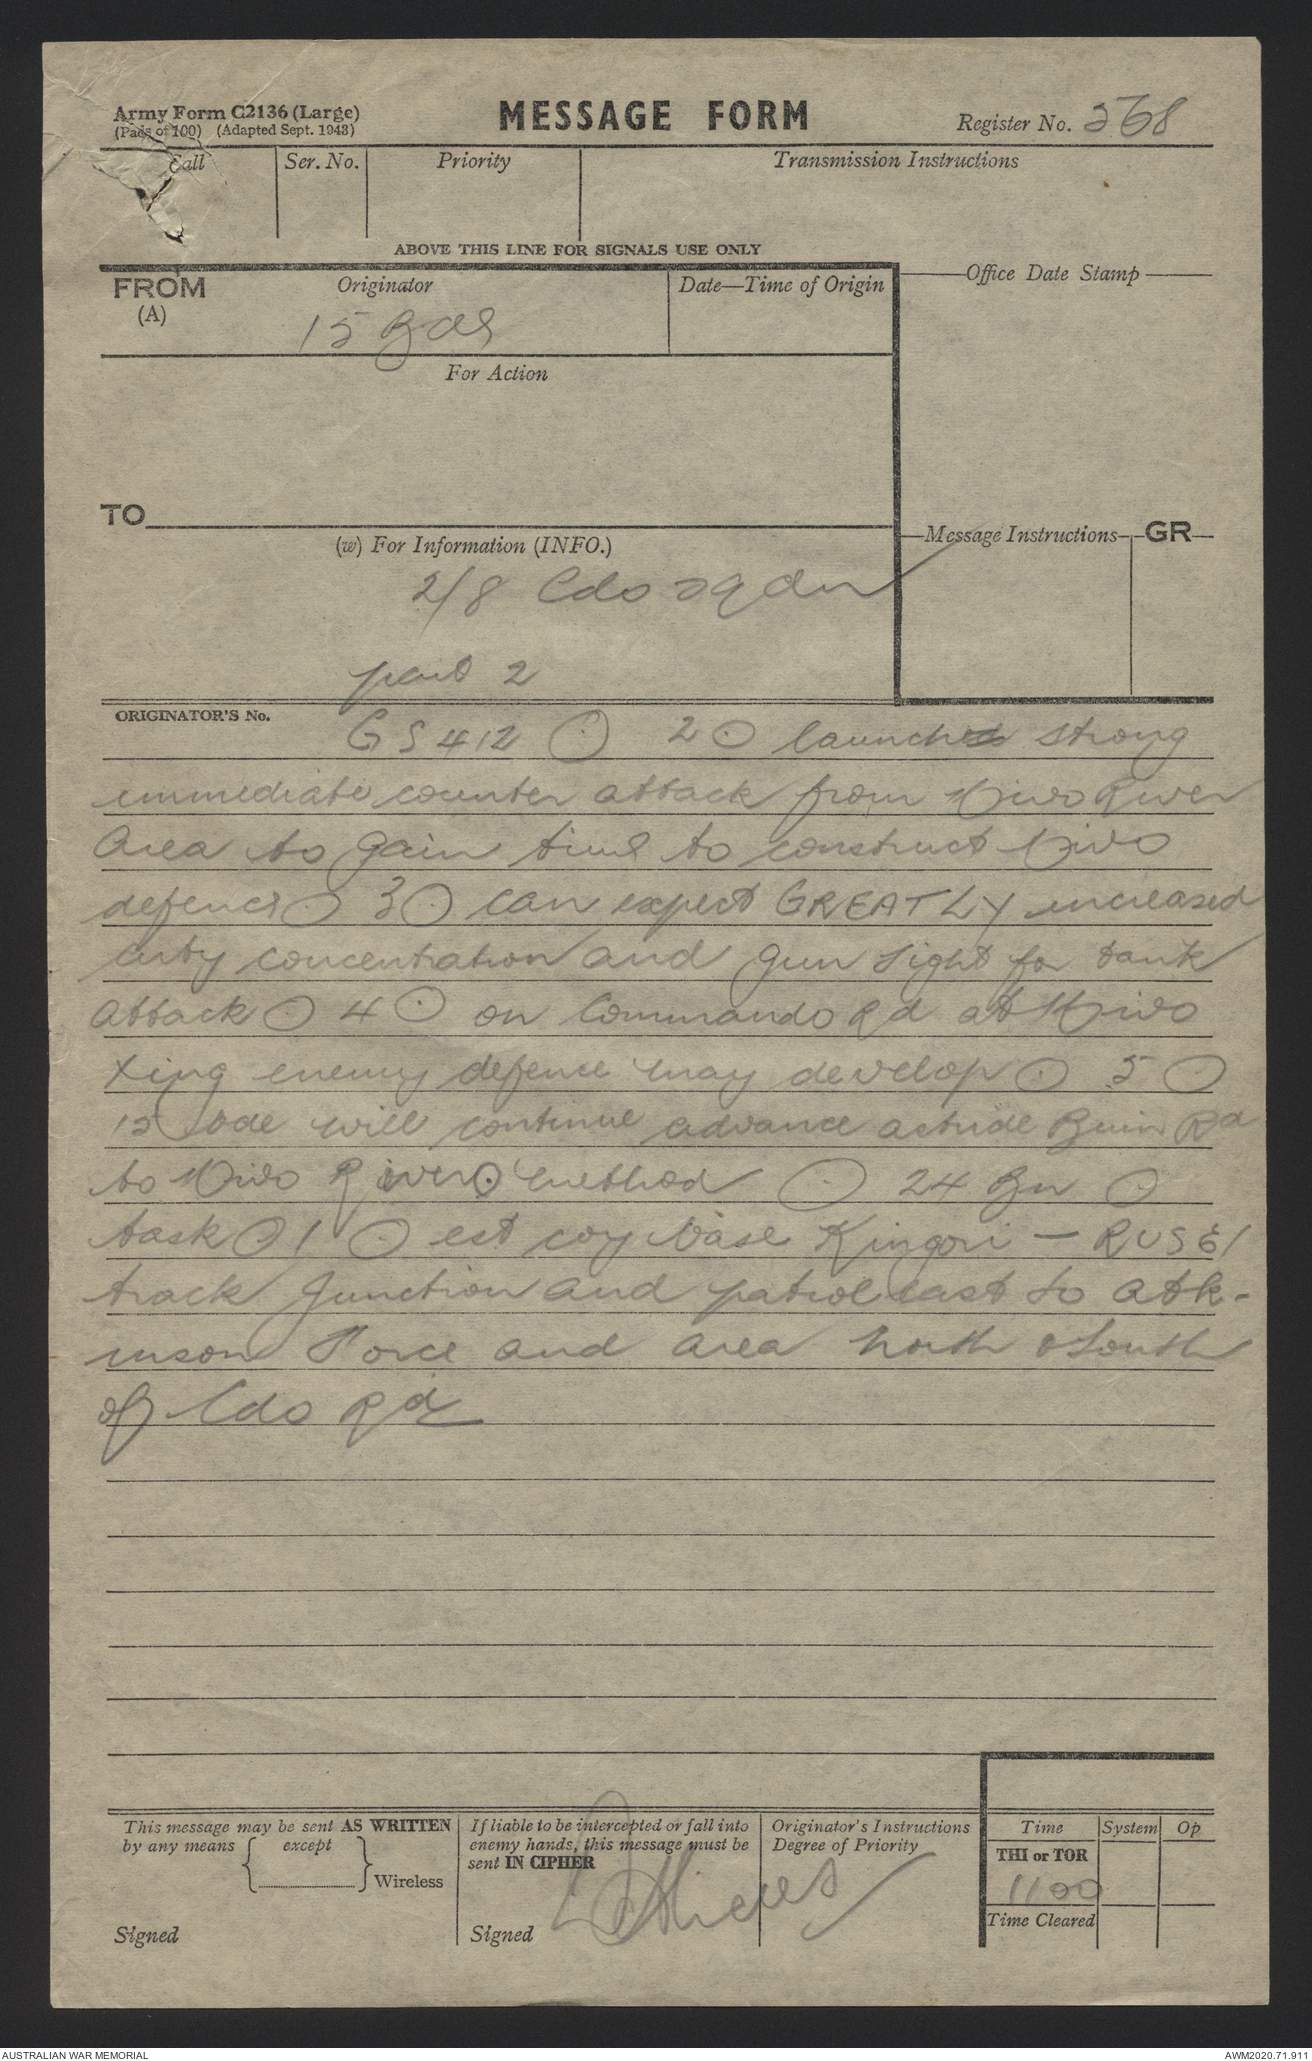 Army Form C2136 (Large)
(Pads of 100) (Adapted Sept. 1943)
MESSAGE FORM
Register No. 568
Call
Ser. No.
Priority
Transmission Instructions
ABOVE THIS LINE FOR SIGNALS USE ONLY
FROM
(A)
Originator
15 Bde
Date—Time of Origin
Office Date Stamp
For Action
TO
(w) For Information (INFO.)
Message Instructions
GR
2/8 Cdo sqdn
part 2
ORIGINATOR'S No.
GS 412 ⊙ 2 ⊙ launched strong
immediate counter attack from Mivo River
area to gain time to construct Mivo
defence ⊙ 3 ⊙ can expect GREATLY increased
arty concentration and gun sight for tank
attack ⊙ 4 ⊙ on Commando Rd at Mivo
Xing enemy defence may develop ⊙ 5 ⊙
15 bde will continue advance astride Buin Rd
to Mivo River ⊙ method ⊙ 24 Bn ⊙
task ⊙ 1 ⊙ est coy base Kingori — RUSEI
track junction and patrol east to Atk-
inson Force and area north & South
of Cdo Rd
This message may be sent AS WRITTEN
by any means { except } Wireless
Signed
If liable to be intercepted or fall into
enemy hands, this message must be
sent IN CIPHER
Signed
Originator's Instructions
Degree of Priority
Time
System
Op
THI or TOR
1100
Time Cleared
AUSTRALIAN WAR MEMORIAL
AWM2020.71.911